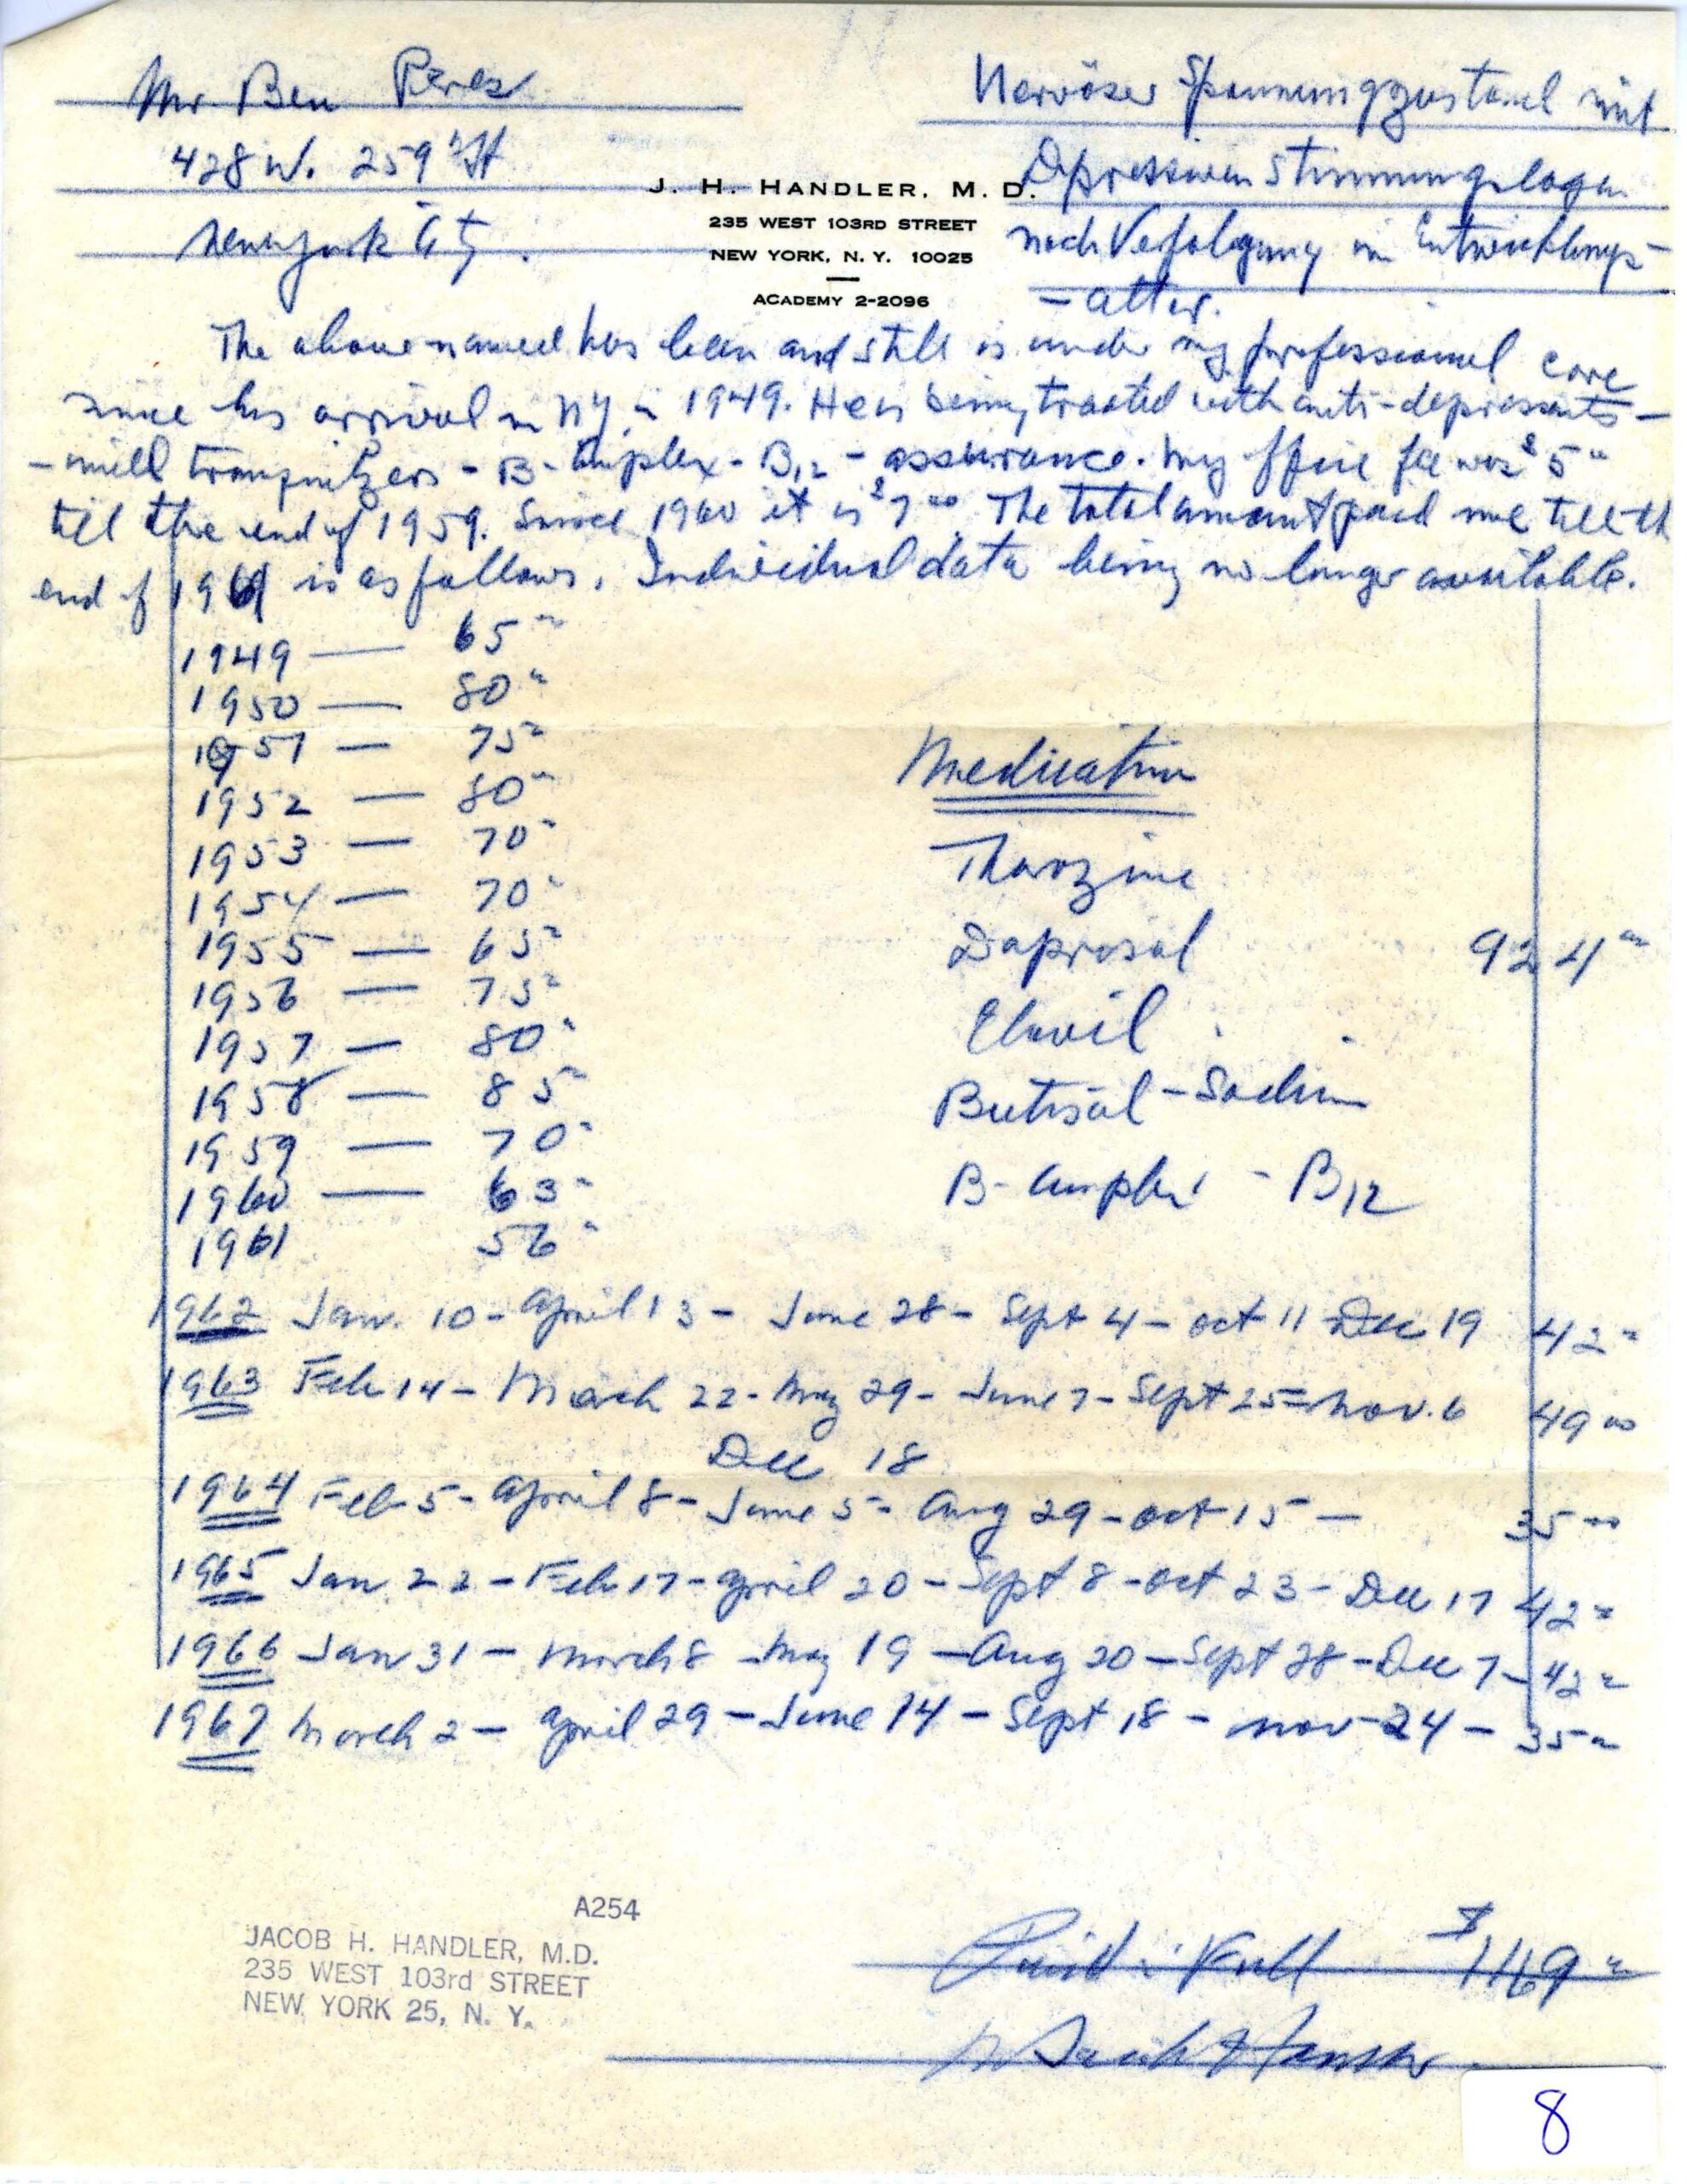 Mr Ben Peres
428 W. 259 St
New York City.
Nervöser Spannungzustand mit
Depressiven Stimmungslagen
nach Verfolgung im Entwicklungs-
- alter.
J. H. HANDLER, M. D.
235 WEST 103RD STREET
NEW YORK, N. Y. 10025
ACADEMY 2-2096
The above-named has been and still is under my professional care
since his arrival in NY in 1949. He is being treated with anti-depressants -
- mild tranquilizers - B-Complex - B12 - assurance. My office fee was $5
till the end of 1959. Since 1960 it is $7 00 The total amount paid me till th
end of 1961 is as follows. Individual data being no longer available.
1949 — 65
1950 — 80
1951 — 75
1952 — 80
1953 — 70
1954 — 70
1955 — 65
1956 — 75
1957 — 80
1958 — 85
1959 — 70
1960 — 63
1961 56
Medication
Thorozine
Daprosal
Elavil
Butisol - Sodium
B- Complex - B12
924
1962 Jan. 10 - April 13 - June 28 - Sept 4 - Oct 11 Dec 19 42
1963 Feb 14 - March 22 - May 29 - June 7 - Sept 25 = Nov. 6 49 00
Dec 18
1964 Feb 5 - April 8 - June 5 - Aug 29 - Oct 15 — 35 00
1965 Jan 22 - Feb 17 - April 20 - Sept 8 - Oct 23 - Dec 17 42
1966 Jan 31 - March 8 - May 19 - Aug 20 - Sept 28 - Dec 7 - 42
1967 March 2 - April 29 - June 14 - Sept 18 - Nov 24 - 35
A254
JACOB H. HANDLER, M.D.
235 WEST 103rd STREET
NEW YORK 25, N. Y.
Paid in Full $1169
8